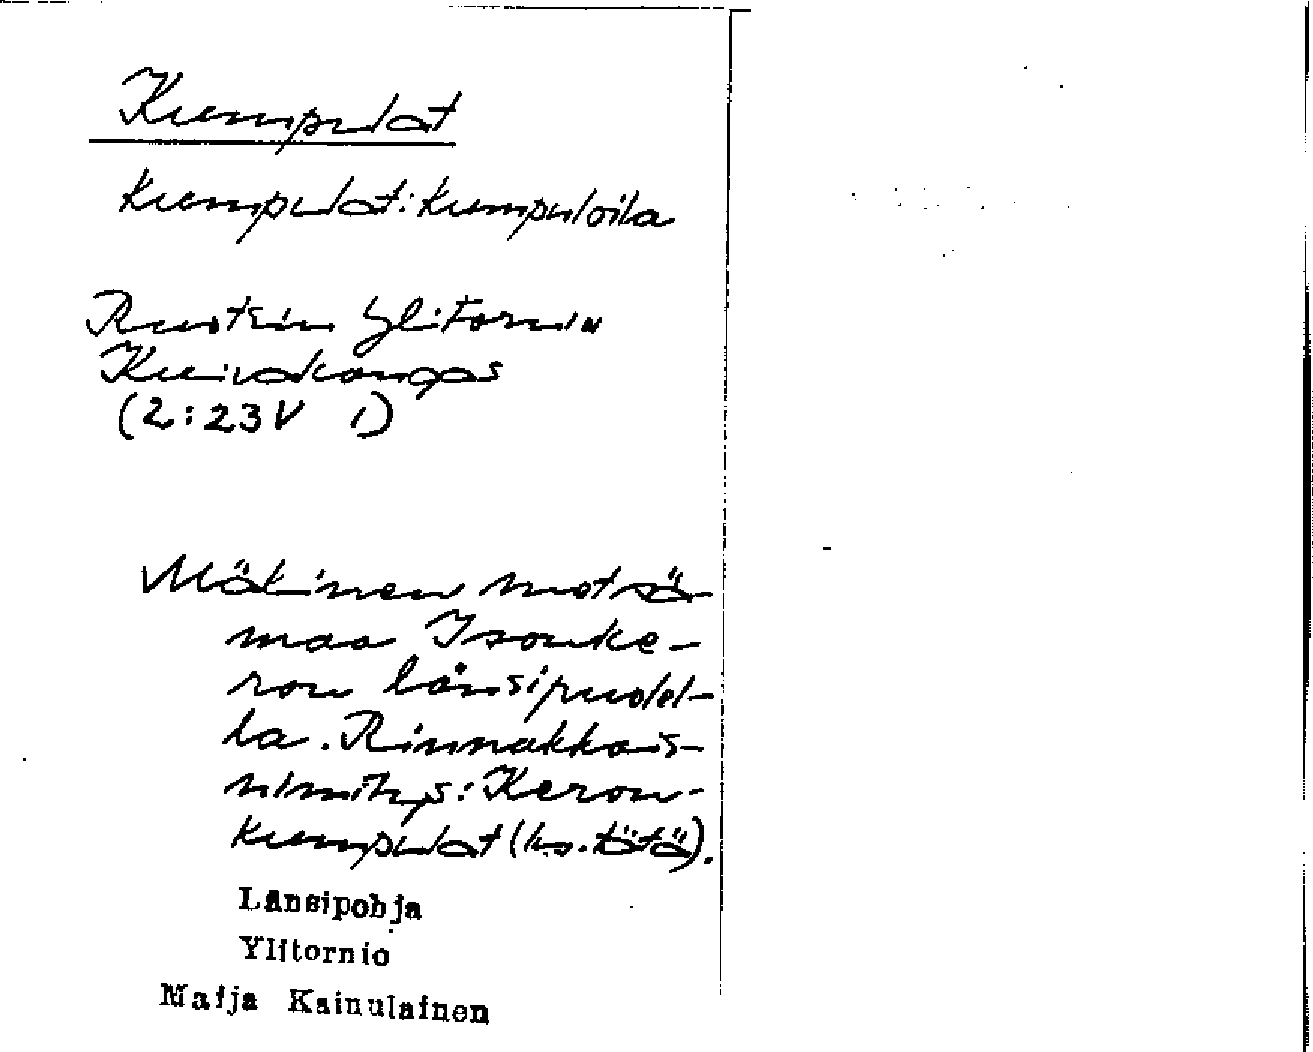 Kumpulat
Kumpulat: Kumpuloila
Ruotsin Ylitornio
Kuivakangas
(2:23V 1)
Mäkinen metsä-
maa Isonke-
ron länsipuolel-
la. Rinnakkais-
nimitys: Keron-
kumpulat (ks. tätä).
Länsipohja
Ylitornio
Maija Kainulainen